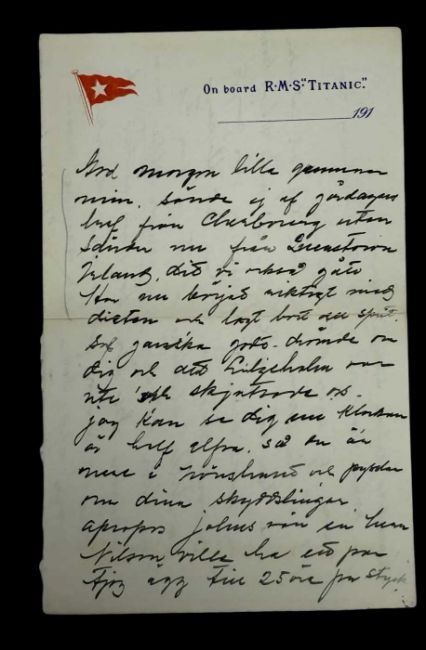 On board R·M·S "TITANIC."
191
God morgon lilla gumman
min. Sände ej af gårdagens
bref från Cherbourg utan
sänder nu från Queenstown
Irland, dit vi också gå
Har nu börjat riktigt med
dieten och lagt bort all sprit.
Sof ganska godt. drömde om
dig och att var
ute och skjutsade os.
jag kan se dig nu klockan
är half elfva. så du är
nere i hönshuset och pysslar
om dina skyddslingar
apropos vän en herr
Nilson ville ha ett par
Tjog ägg till 25 öre pr styck